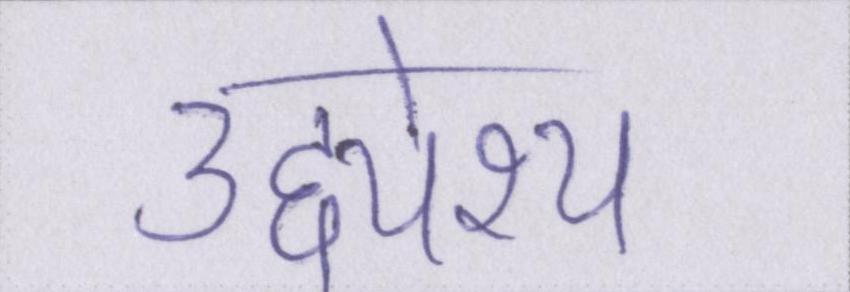 उद्द्येश्य